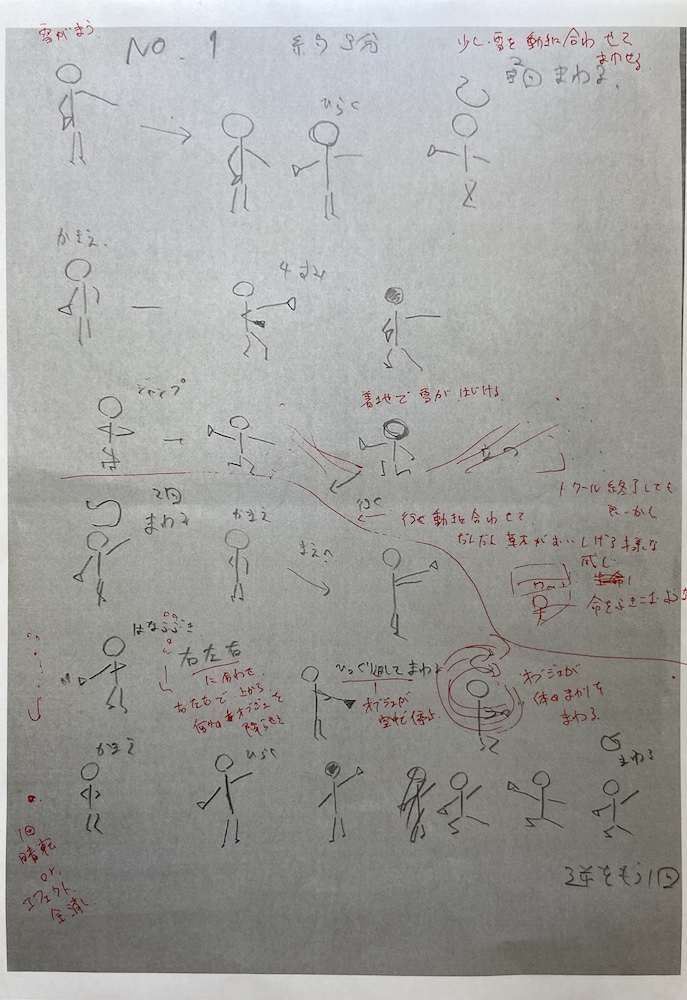 雪がまう
NO. 1
約3分
少し雪を動きに合わせて
まわせる
2回まわる。
ひらく
かまえ、
ジャンプ
着地で雪がはじける
立つ
終了しても
2回
まわる
かまえ
まえへ
行く
動きに合わせて、
だんだん草木が
しげる様な
感じ
生命
命をふきこむ
はなふぶき
右左右
に合わせ、
右左右で上から
オブジェを
降らせる
ひっくり返してまわる
オブジェが
オブジェが
体のまわりを
まわる
かまえ
ひらく
まわる
1回
暗転
or
エフェクト
全消し
逆をもう1回